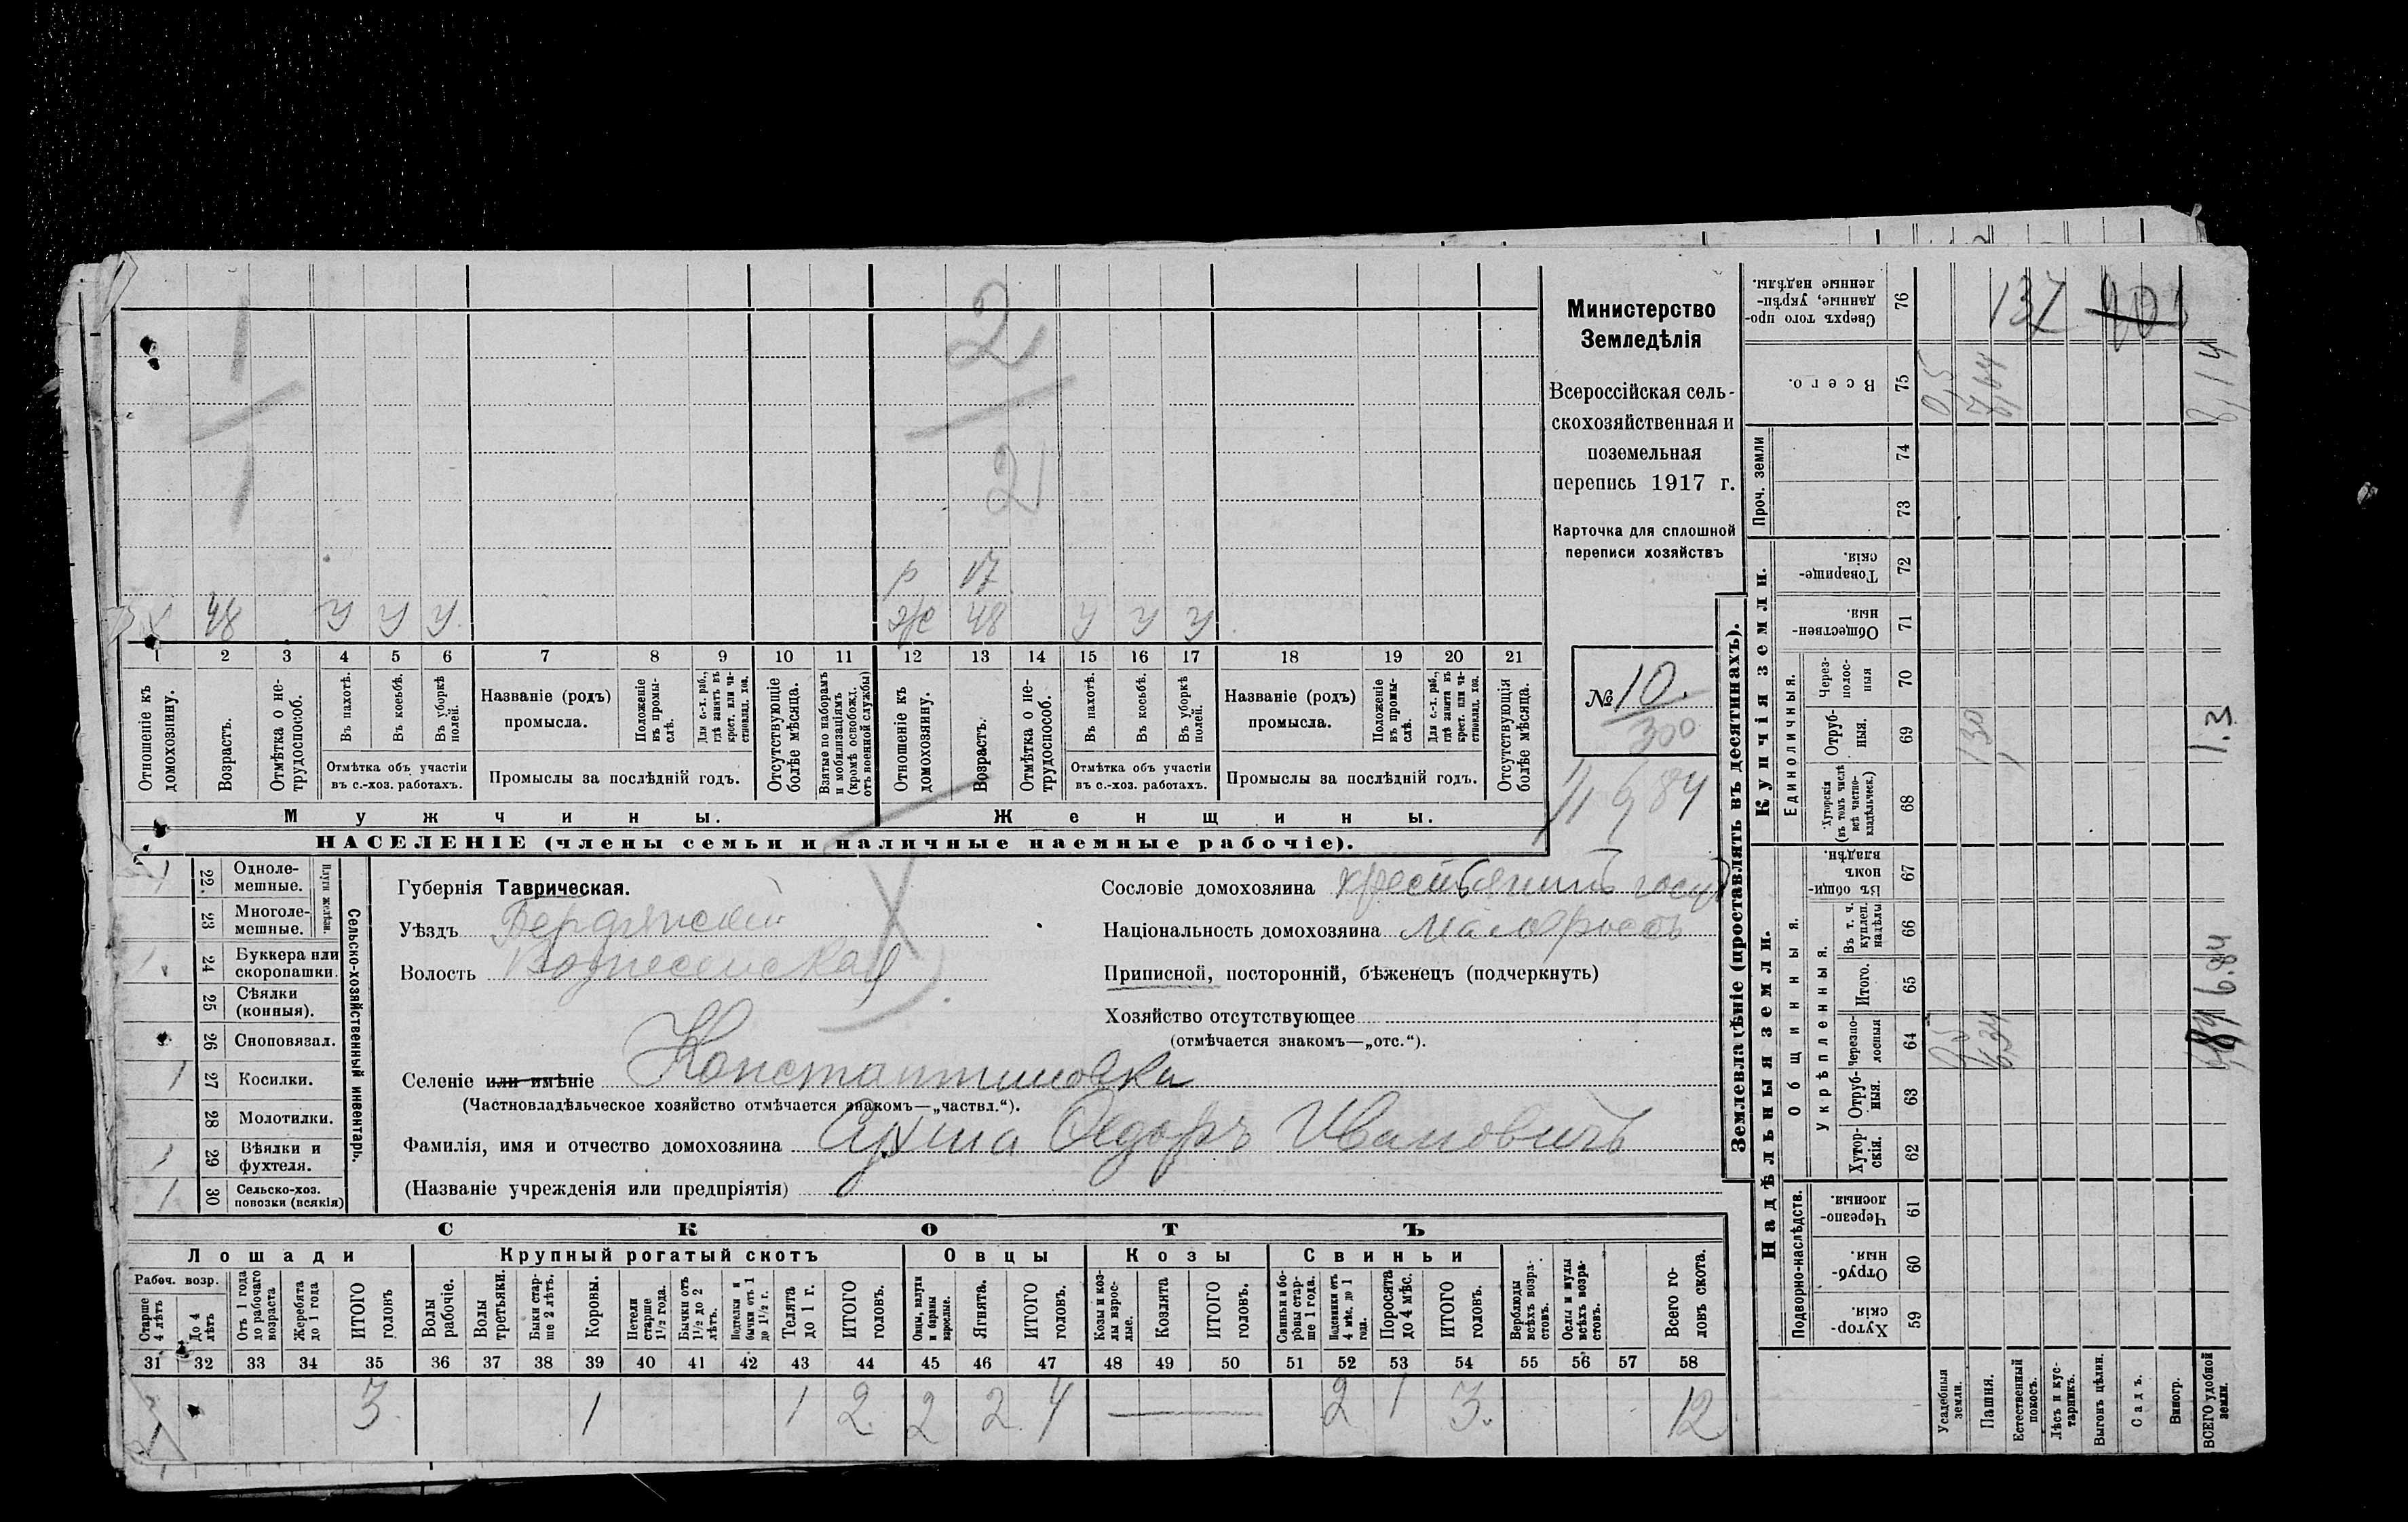 Министерство
Земледѣлія
Всероссійская сель-
скохозяйственная и
поземельная
перепись 1917 г.
Карточка для сплошной
переписи хозяйствъ
№ 10.
300
1/1 6,84
1
1
2
2
р 17
48 У У У ж 48 У У У
1 2 3 4 5 6 7 8 9 10 11 12 13 14 15 16 17 18 19 20 21
Отношеніе къ домохозяину.
Возрастъ.
Отмѣтка о не-трудоспособ.
Въ пахотѣ.
Въ косьбѣ.
Въ уборкѣ полей.
Отмѣтка объ участіи
въ с.-хоз. работахъ.
Названіе (родъ)
промысла.
Положеніе въ промы-слѣ.
Для с.-х. раб., гдѣ занятъ въ крест. или ча-стновлад. хоз.
Промыслы за послѣдній годъ.
Отсутствующіе болѣе мѣсяца.
Взятые по наборамъ и мобилизаціямъ (кромѣ освобожд. отъ военной службы)
Отношеніе къ домохозяину.
Возрастъ.
Отмѣтка о не-трудоспособ.
Въ пахотѣ.
Въ косьбѣ.
Въ уборкѣ полей.
Отмѣтка объ участіи
въ с.-хоз. работахъ.
Названіе (родъ)
промысла.
Положеніе въ промы-слѣ.
Для с.-х. раб., гдѣ занята въ крест. или ча-стновлад. хоз.
Промыслы за послѣдній годъ.
Отсутствующія болѣе мѣсяца.
Мужчины. Женщины.
НАСЕЛЕНІЕ (члены семьи и наличные наемные рабочіе).
Сельско-хозяйственный инвентарь.
Плуги желѣзн.
1 22. Одноле-мешные.
23 Многоле-мешные.
1 24 Буккера или скоропашки.
25 Сѣялки (конныя).
26 Сноповязал.
1 27 Косилки.
28 Молотилки.
1 29 Вѣялки и фухтеля.
1 30 Сельско-хоз. повозки (всякія)
Губернія Таврическая.
Уѣздъ Бердянскій
Волость Вознесенская
Сословіе домохозяина крестьянинъ госуд
Національность домохозяина малороссъ
Приписной, посторонній, бѣженецъ (подчеркнуть)
Хозяйство отсутствующее
(отмѣчается знакомъ—„отс.“).
Селеніе или имѣніе Константиновка
(Частновладѣльческое хозяйство отмѣчается знакомъ—„частвл.“).
Фамилія, имя и отчество домохозяина Ѳедоръ Ивановичъ
(Названіе учрежденія или предпріятія)
СКОТЪ
Лошади Крупный рогатый скотъ Овцы Козы Свиньи
Рабоч. возр.
Старше 4 лѣтъ
До 4 лѣтъ
Отъ 1 года до рабочаго возраста
Жеребята до 1 года
ИТОГО головъ
Волы рабочіе.
Волы третьяки.
Быки стар-ше 2 лѣтъ.
Коровы.
Нетели старше 1½ года.
Бычки отъ 1½ до 2 лѣтъ.
Подтелки и бычки отъ 1 до 1½ г.
Телята до 1 г.
ИТОГО головъ.
Овцы, валухи и бараны взрослые.
Ягнята.
ИТОГО головъ.
Козы и коз-лы взрос-лые.
Козлята
ИТОГО головъ.
Свиньи и бо-ровы стар-ше 1 года.
Подсвинки отъ 4 мѣс. до 1 года.
Поросята до 4 мѣс.
ИТОГО головъ.
Верблюды всѣхъ возра-стовъ.
Ослы и мулы всѣхъ возра-стовъ.
Всего го-ловъ скота.
31 32 33 34 35 36 37 38 39 40 41 42 43 44 45 46 47 48 49 50 51 52 53 54 55 56 57 58
3 1 1 2 2 2 4 — 2 1 3 12
Землевладѣніе (проставлять въ десятинахъ).
Надѣльныя земли. Купчія земли. Проч. земли
Подворно-наслѣдств. Общинныя. Единоличныя.
Укрѣпленныя.
Хутор-скія. 59
Отруб-ныя. 60
Черезпо-лосныя. 61
Хутор-скія. 62
Отруб-ныя. 63
Черезпо-лосныя 64
Итого. 65
Въ т. ч. куплен. надѣлы 66
Въ общи-номъ владѣн. 67
Хуторскія (въ томъ числѣ всѣ частно-владѣльческ.) 68
Отруб-ныя. 69
Черезполос-ныя 70
Обществен-ныя. 71
Товарище-скія. 72
73
74
Всего. 75
Сверхъ того про-данные, укрѣп-ленные надѣлы. 76
Усадебныя земли. 0,5 0,5
Пашня. 6,34 1 30 7,64
Естественный покосъ.
Лѣсъ и кус-тарникъ.
Выгонъ цѣлин.
Садъ.
Виногр.
ВСЕГО удобной земли. 6.84 1.3 8,14
137